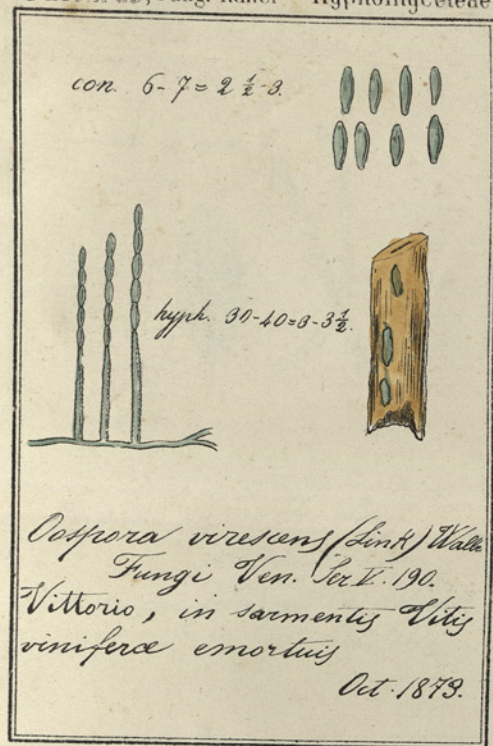 Hyphomyceteae
con. 6-7 = 2 ½-3.
hyph. 30-40=3-3½.
Oospora virescens (Link) Wallr
Fungi Ven. Ser V. 190.
Vittorio, in sarmentis Vitis
viniferæ emortuis
Oct. 1873.